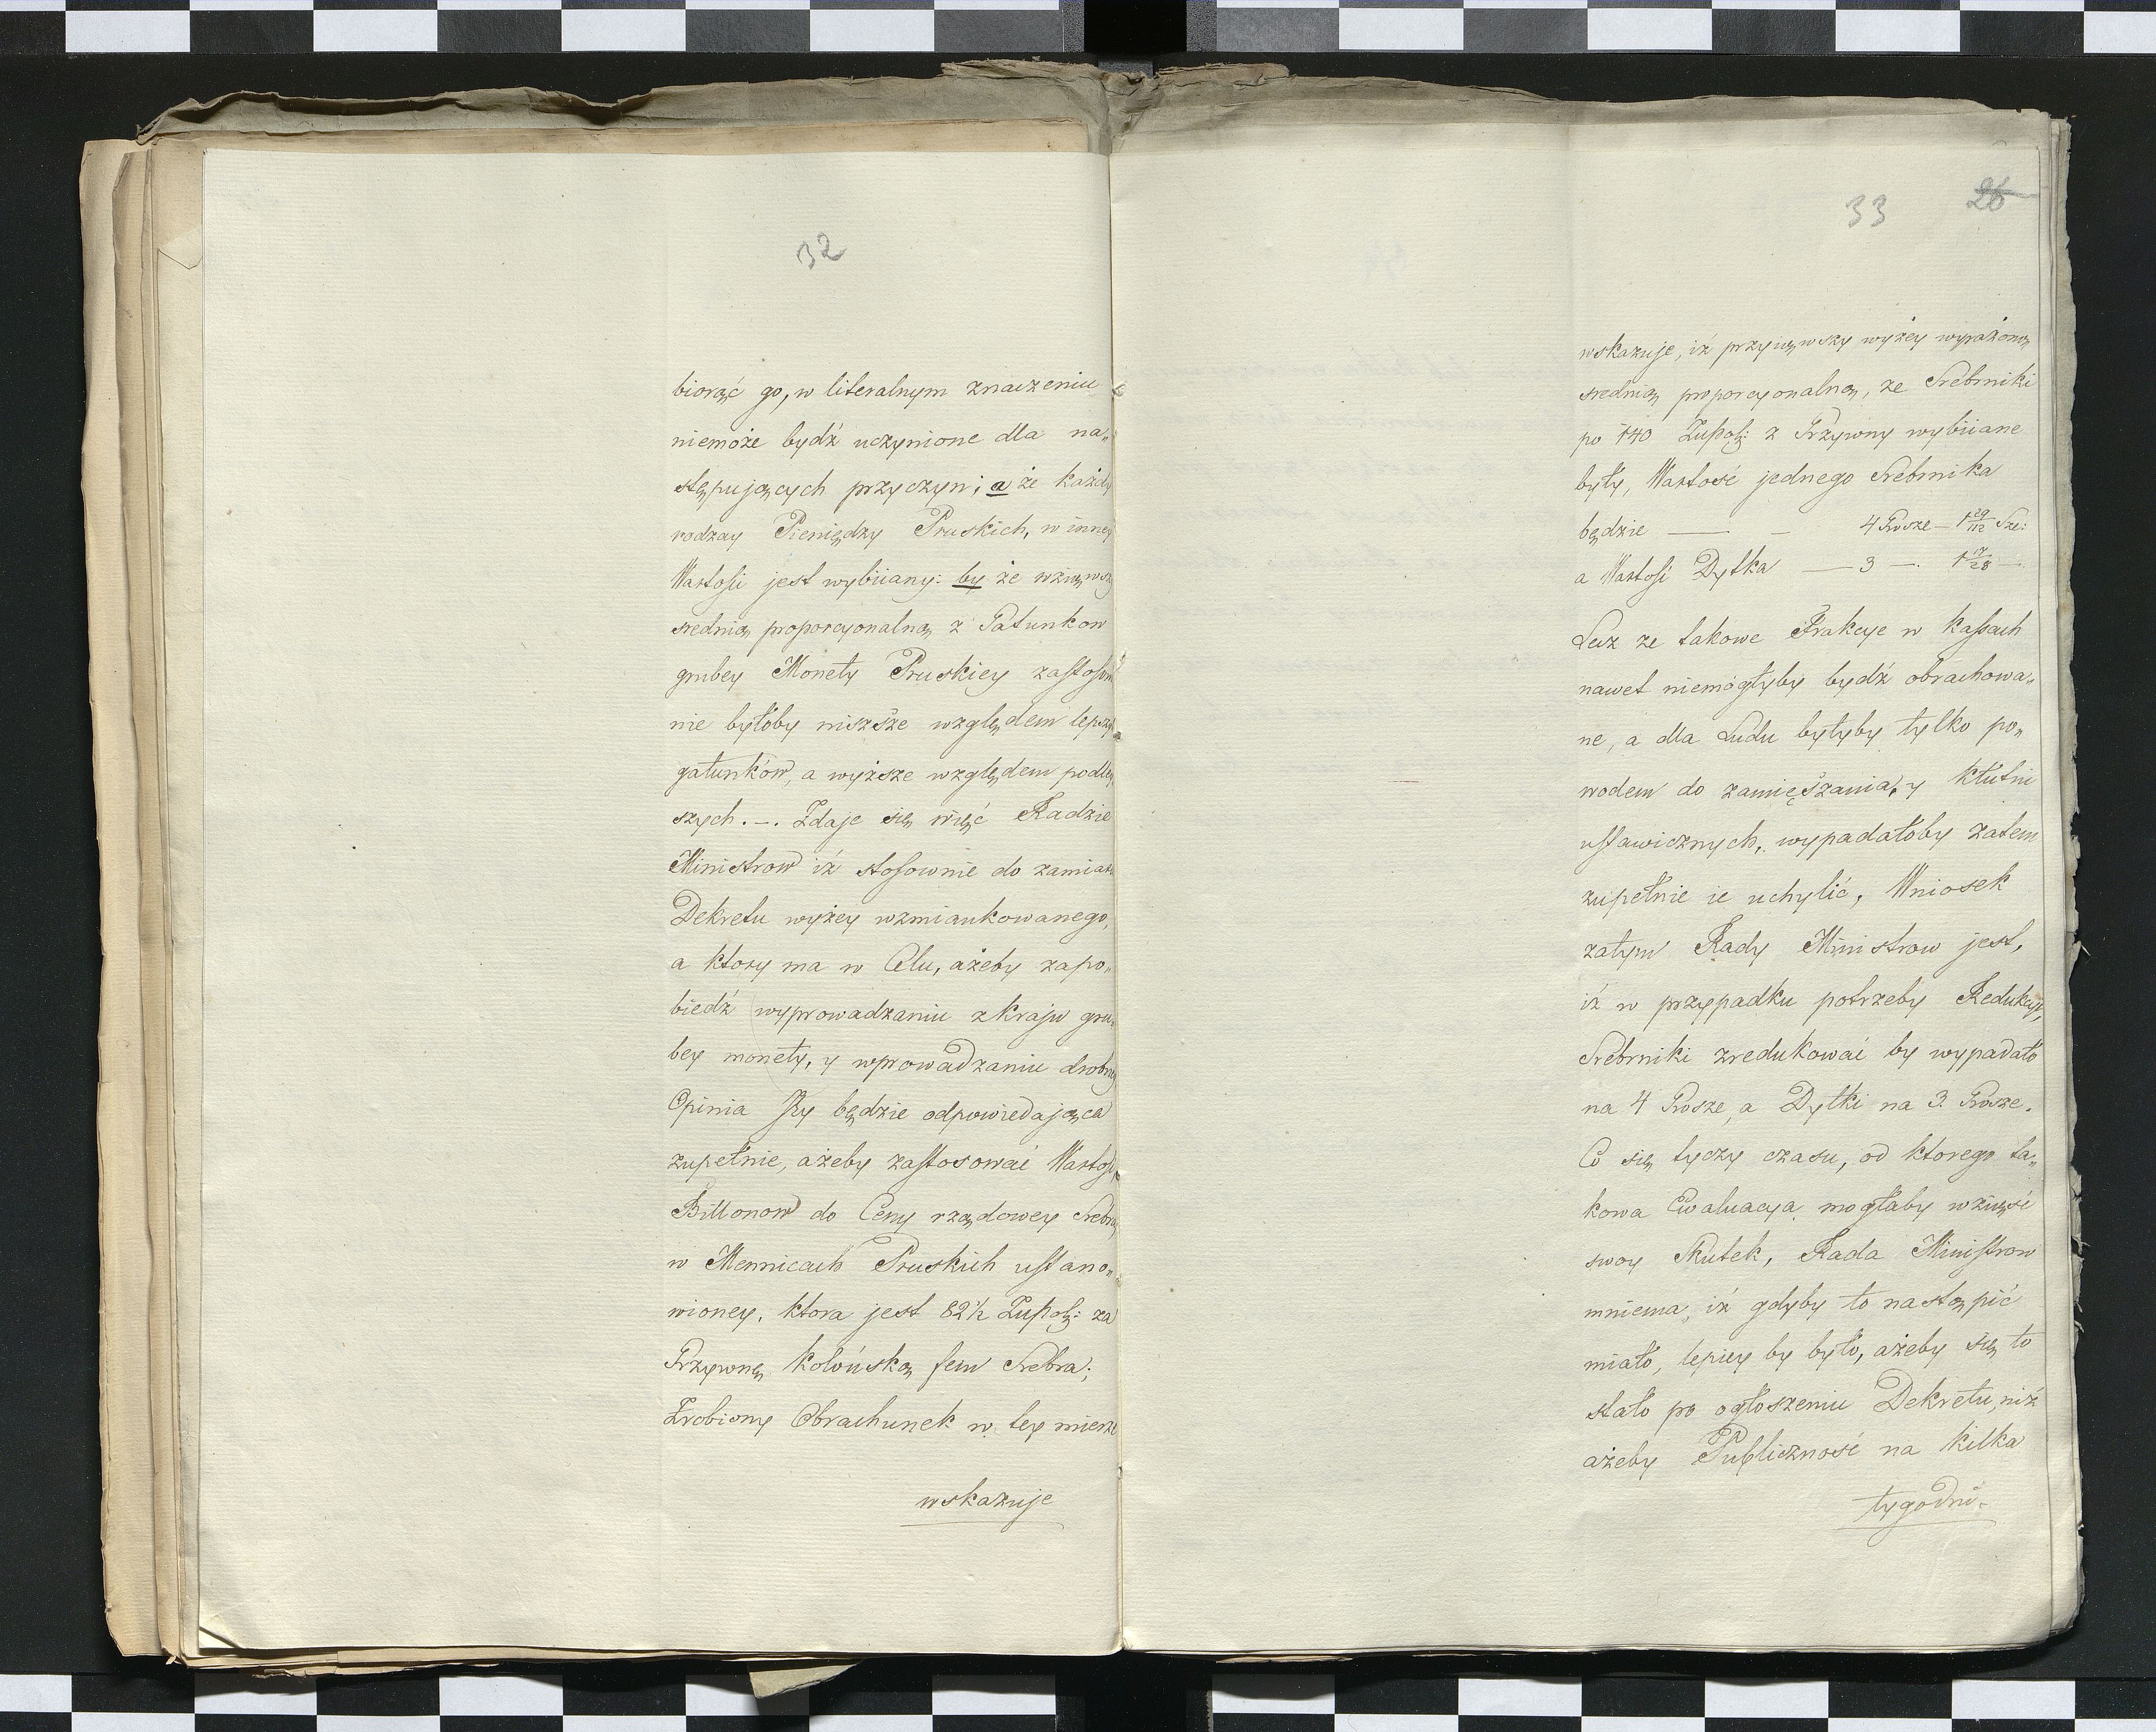 32
biorąć go, w literalnym znaczeniu
niemoże bydź uczynione dla na„
stępujących przyczyn; a że każdy
rodzay Pieniędzy Pruskich, w inney
Wartosci jest wybiiany: by że wziąwszy
srednią proporcyonalną z Gatunkow
grubey Monety Pruskiey zastosow
nie byłoby niższe względem lepszy
gatunków, a wyższe względem podley
szych. —. Zdaje się więć Radzie
Ministrow iż stosownie do zamiaru
Dekretu wyżey wzmiankowanego,
a ktory ma w Celu, ażeby zapo„
biedź wyprowadzaniu z kraju gru„
bey monety, y wprowadzaniu drobney
Opinia Jey będzie odpowiedająca
zupełnie, ażeby zastosować Wartość
Billonow do Ceny rządowey Srebra
w Mennicach Pruskich ustano„
wioney, ktora jest 82½ Złupol: za
Grzywnę kolońską fein Srebra;
Zrobiony Obrachunek w tey mierze
wskazuje
33 26
wskazuje, iż przyiąwszy wyżey wyrażoną
srednią proporcyonalną, że Srebrniki
po 140 Złupol: z Grzywny wybiiane
były, Wartość jednego Srebrnika
będzie — — 4 Grosze — 1 29/112 Sze:
a Wartość Dytka — 3 —. 1 17/28 —.
Lecz że takowe Frakcye w kassach
nawet niemogłyby bydź obrachowa„
ne, a dla Ludu byłyby tylko po„
wodem do zamięszania, y Kłutni
ustawicznych, wypadałoby zatem
zupełnie ie uchylić, Wniosek
zatym Rady Ministrow jest,
iż w przypadku potrzeby Redukcyi,
Srebrniki zredukować by wypadało
na 4 Grosze, a Dytki na 3. Grosze.
Co się tyczy czasu, od ktorego ta„
kowa Ewaluacya mogłaby wziąść
swoy Skutek, Rada Ministrow
mniema, iż gdyby to nastąpić
miało, lepiey by było, ażeby się to
stało po ogłoszeniu Dekretu, niż
ażeby Publiczność na kilka
tygodni„